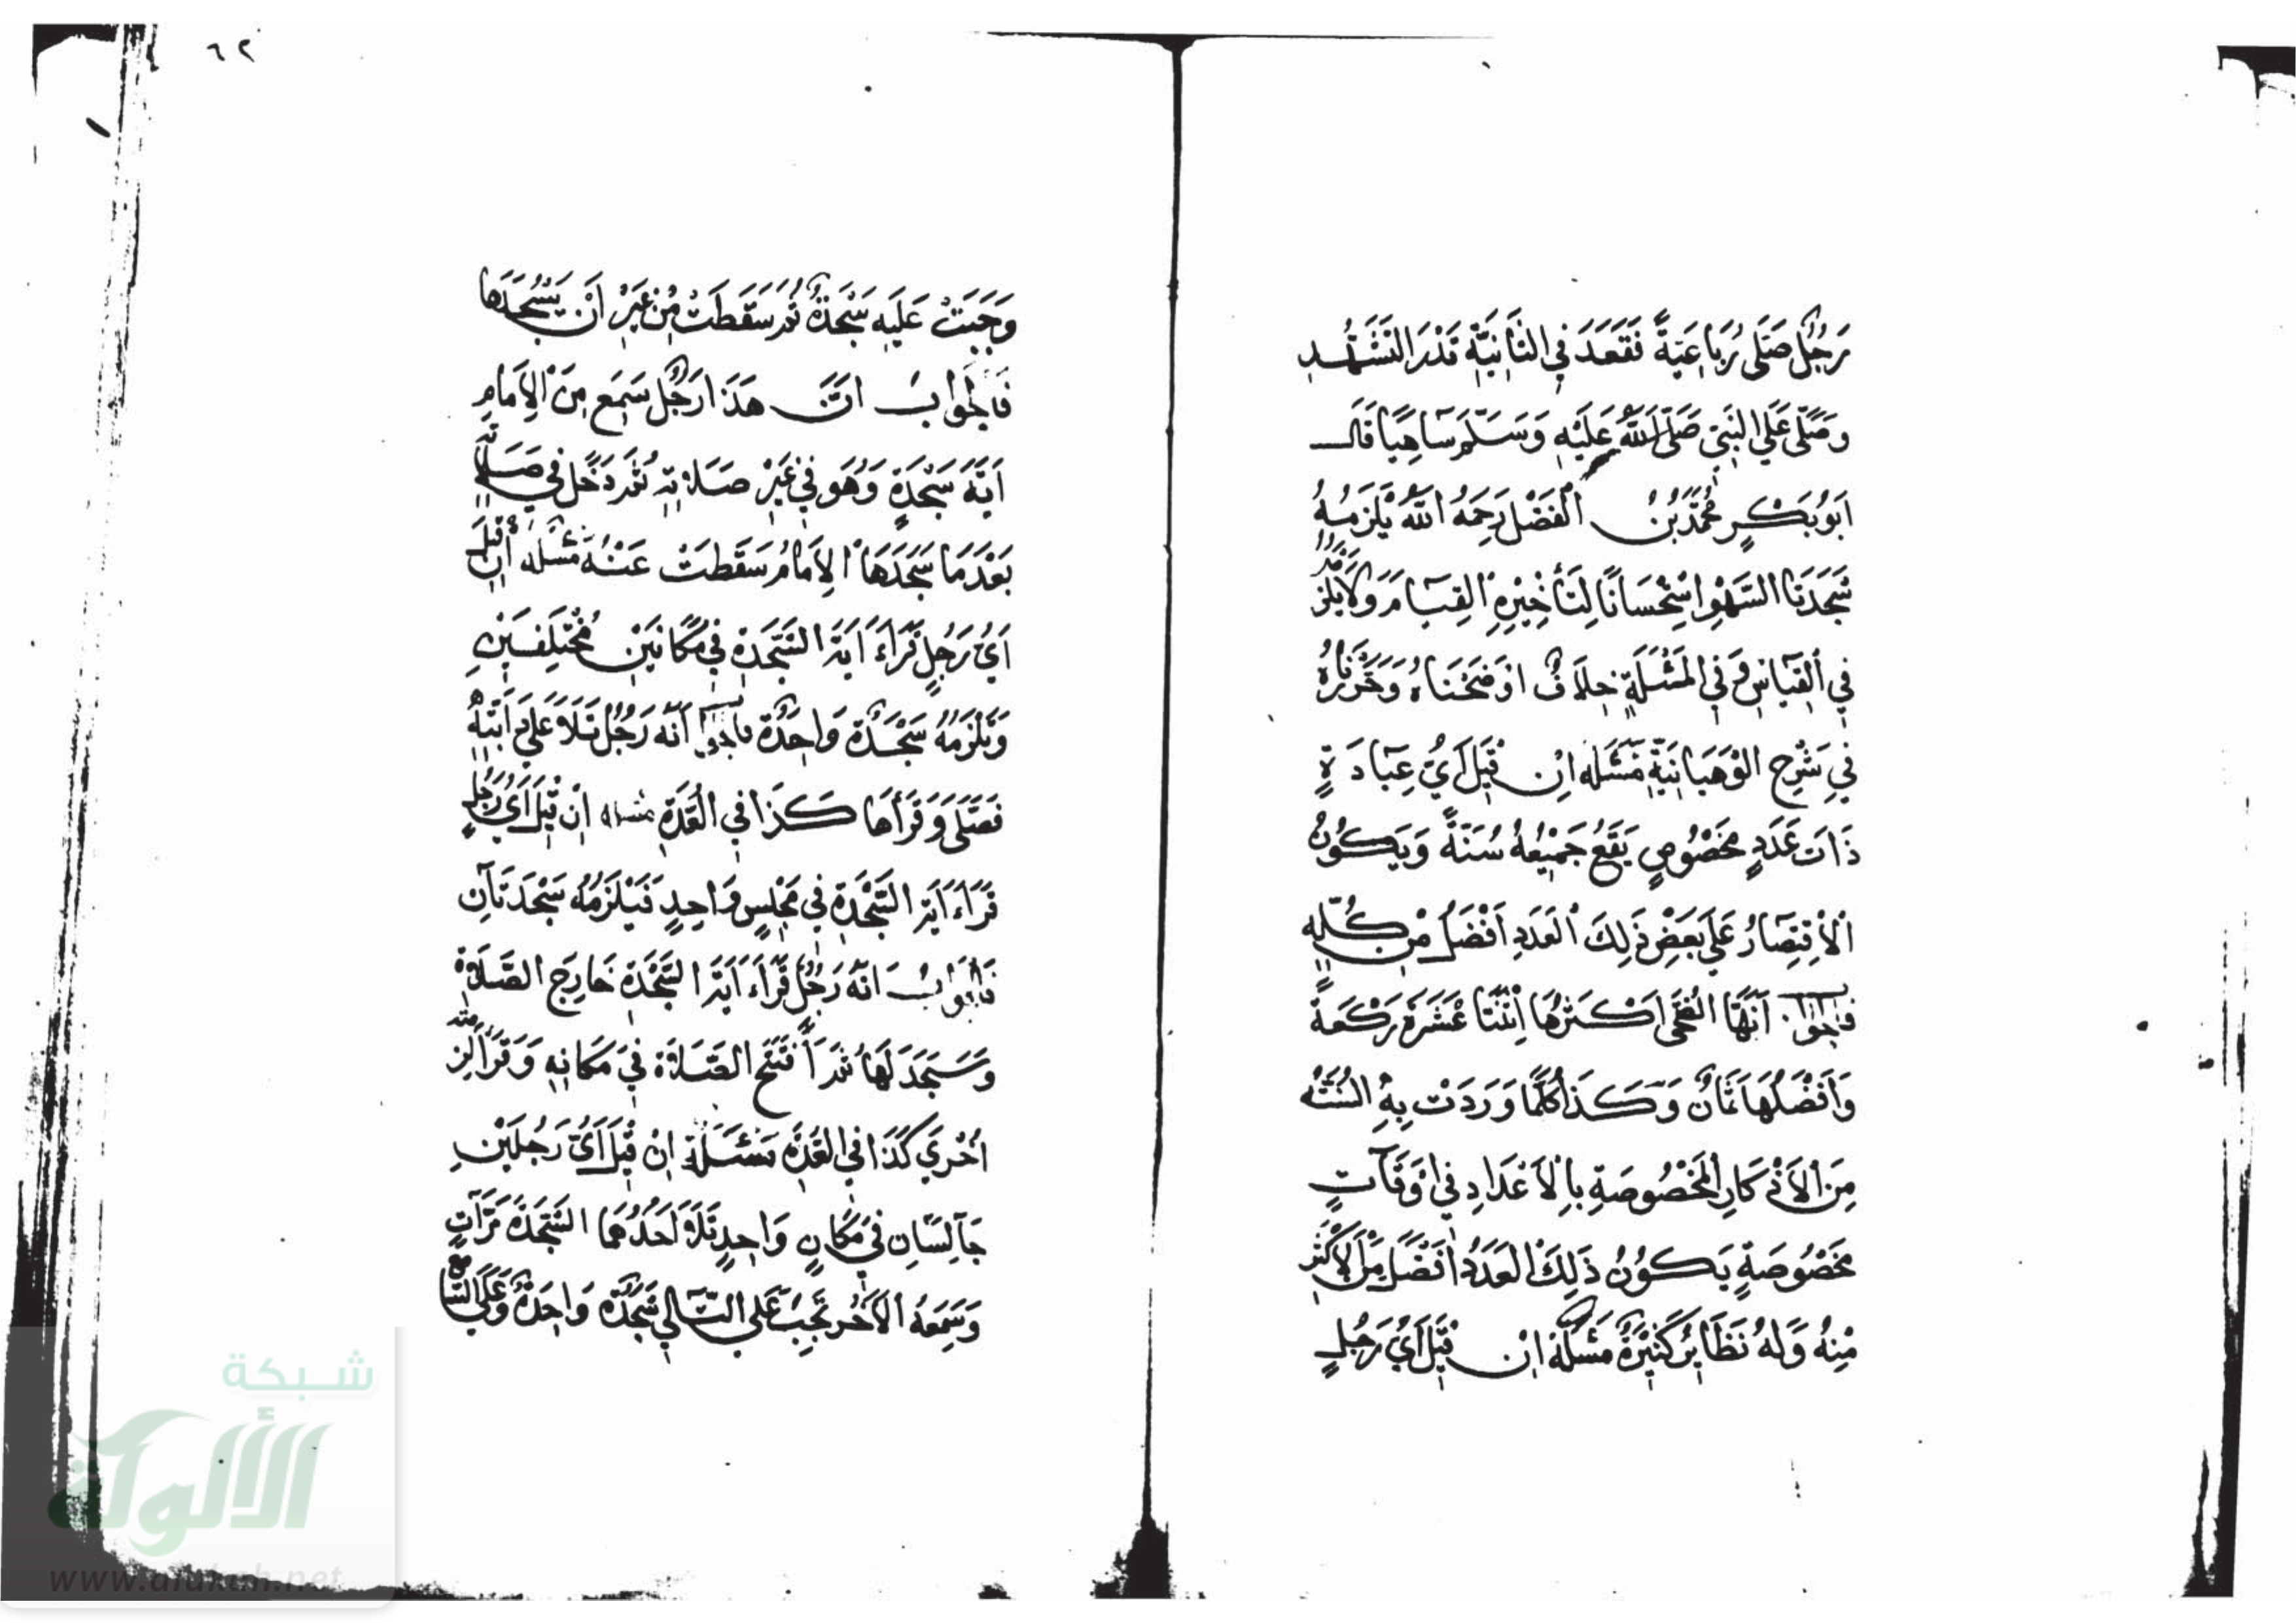 رَجُلٌ صَلَّى رُبَاعِيَّةً فَقَعَدَ فِي الثَّانِيَةِ قَدْرَ التَّشَهُّدِ
وَصَلَّى عَلَى النَّبِيِّ صَلَّى اللَّهُ عَلَيْهِ وَسَلَّمَ سَاهِيًا قَالَ
أَبُو بَكْرٍ مُحَمَّدُ بْنُ الْفَضْلِ رَحِمَهُ اللَّهُ يَلْزَمُهُ
سَجْدَتَا السَّهْوِ اسْتِحْسَانًا لِتَأْخِيرِهِ الْقِيَامَ وَلَا يَلْزَمُهُ
فِي الْقِيَاسِ وَفِي الْمَسْئَلَةِ خِلَافٌ أَوْضَحْنَاهُ وَحَرَّرْنَاهُ
فِي شَرْحِ الْوَهْبَانِيَّةِ مَسْئَلَه إِنْ قِيلَ أَيُّ عِبَادَةٍ
ذَاتَ عَدَدٍ مَخْصُوصٍ يَقَعُ جَمِيعُهُ سُنَّةً وَيَكُونُ
الْاِقْتِصَارُ عَلَى بَعْضِ ذَلِكَ الْعَدَدِ أَفْضَلُ مِنْ كُلِّهِ
فَالجواب أَنَّهَا الضُّحَى أَكْثَرُهَا اثْنَتَا عَشْرَةَ رَكْعَةً
وَأَفْضَلُهَا ثَمَانٌ وَكَذَا كُلَّمَا وَرَدَتْ بِهِ السُّنَّةُ
مِنَ الْأَذْكَارِ الْمَخْصُوصَةِ بِالْأَعْدَادِ فِي أَوْقَاتٍ
مَخْصُوصَةٍ يَكُونُ ذَلِكَ الْعَدَدُ أَفْضَلَ مِنَ الْأَكْثَرِ
مِنْهُ وَلَهُ نَظَائِرُ كَثِيرَةٌ مَسْئَلَة إِنْ قِيلَ أَيُّ رَجُلٍ
٦٢
وَجَبَتْ عَلَيْهِ سَجْدَةٌ ثُمَّ سَقَطَتْ مِنْ غَيْرِ أَنْ يَسْجُدَهَا
فَالْجَوَابُ إِنَّ هَذَا رَجُلٌ سَمِعَ مِنَ الْإِمَامِ
آيَةَ سَجْدَةٍ وَهُوَ فِي غَيْرِ صَلَاتِهِ ثُمَّ دَخَلَ فِي صَلَاتِهِ
بَعْدَمَا سَجَدَهَا الْإِمَامُ سَقَطَتْ عَنْهُ مَسْئَلَه إِنْ قِيلَ
أَيُّ رَجُلٍ قَرَاءَ آيَةَ السَّجْدَةِ فِي مَكَانَيْنِ مُخْتَلِفَيْنِ
وَيَلْزَمُهُ سَجْدَةٌ وَاحِدَةٌ فالجواب أَنَّهُ رَجُلٌ تَلَا عَلَى دَابَّتِهِ
فَصَلَّى وَقَرَأَهَا كَذَا فِي الْعُدَّةِ مسئله إِنْ قِيلَ أَيُّ رَجُلٍ
قَرَاءَ آيَةَ السَّجْدَةِ فِي مَجْلِسٍ وَاحِدٍ فَيَلْزَمُهُ سَجْدَتَانِ
فَالْجَوَابُ أَنَّهُ رَجُلٌ قَرَاءَ آيَةَ السَّجْدَةِ خَارِجَ الصَّلَاةِ
وَسَجَدَ لَهَا ثُمَّ افْتَتَحَ الصَّلَاةَ فِي مَكَانِهِ وَقَرَأَ لَزِمَتْهُ
أُخْرَى كَذَا فِي الْعُدَّةِ مَسْئَلَة إِنْ قِيلَ أَيُّ رَجُلَيْنِ
جَالِسَانِ فِي مَكَانٍ وَاحِدٍ تَلَا أَحَدُهُمَا السَّجْدَةَ مَرَّاتٍ
وَسَمِعَهُ الْآخَرُ تَجِبُ عَلَى التَّالِي سَجْدَةٌ وَاحِدَةٌ وَعَلَى السَّامِعِ
شبكة
الألوكة
www.alukah.net